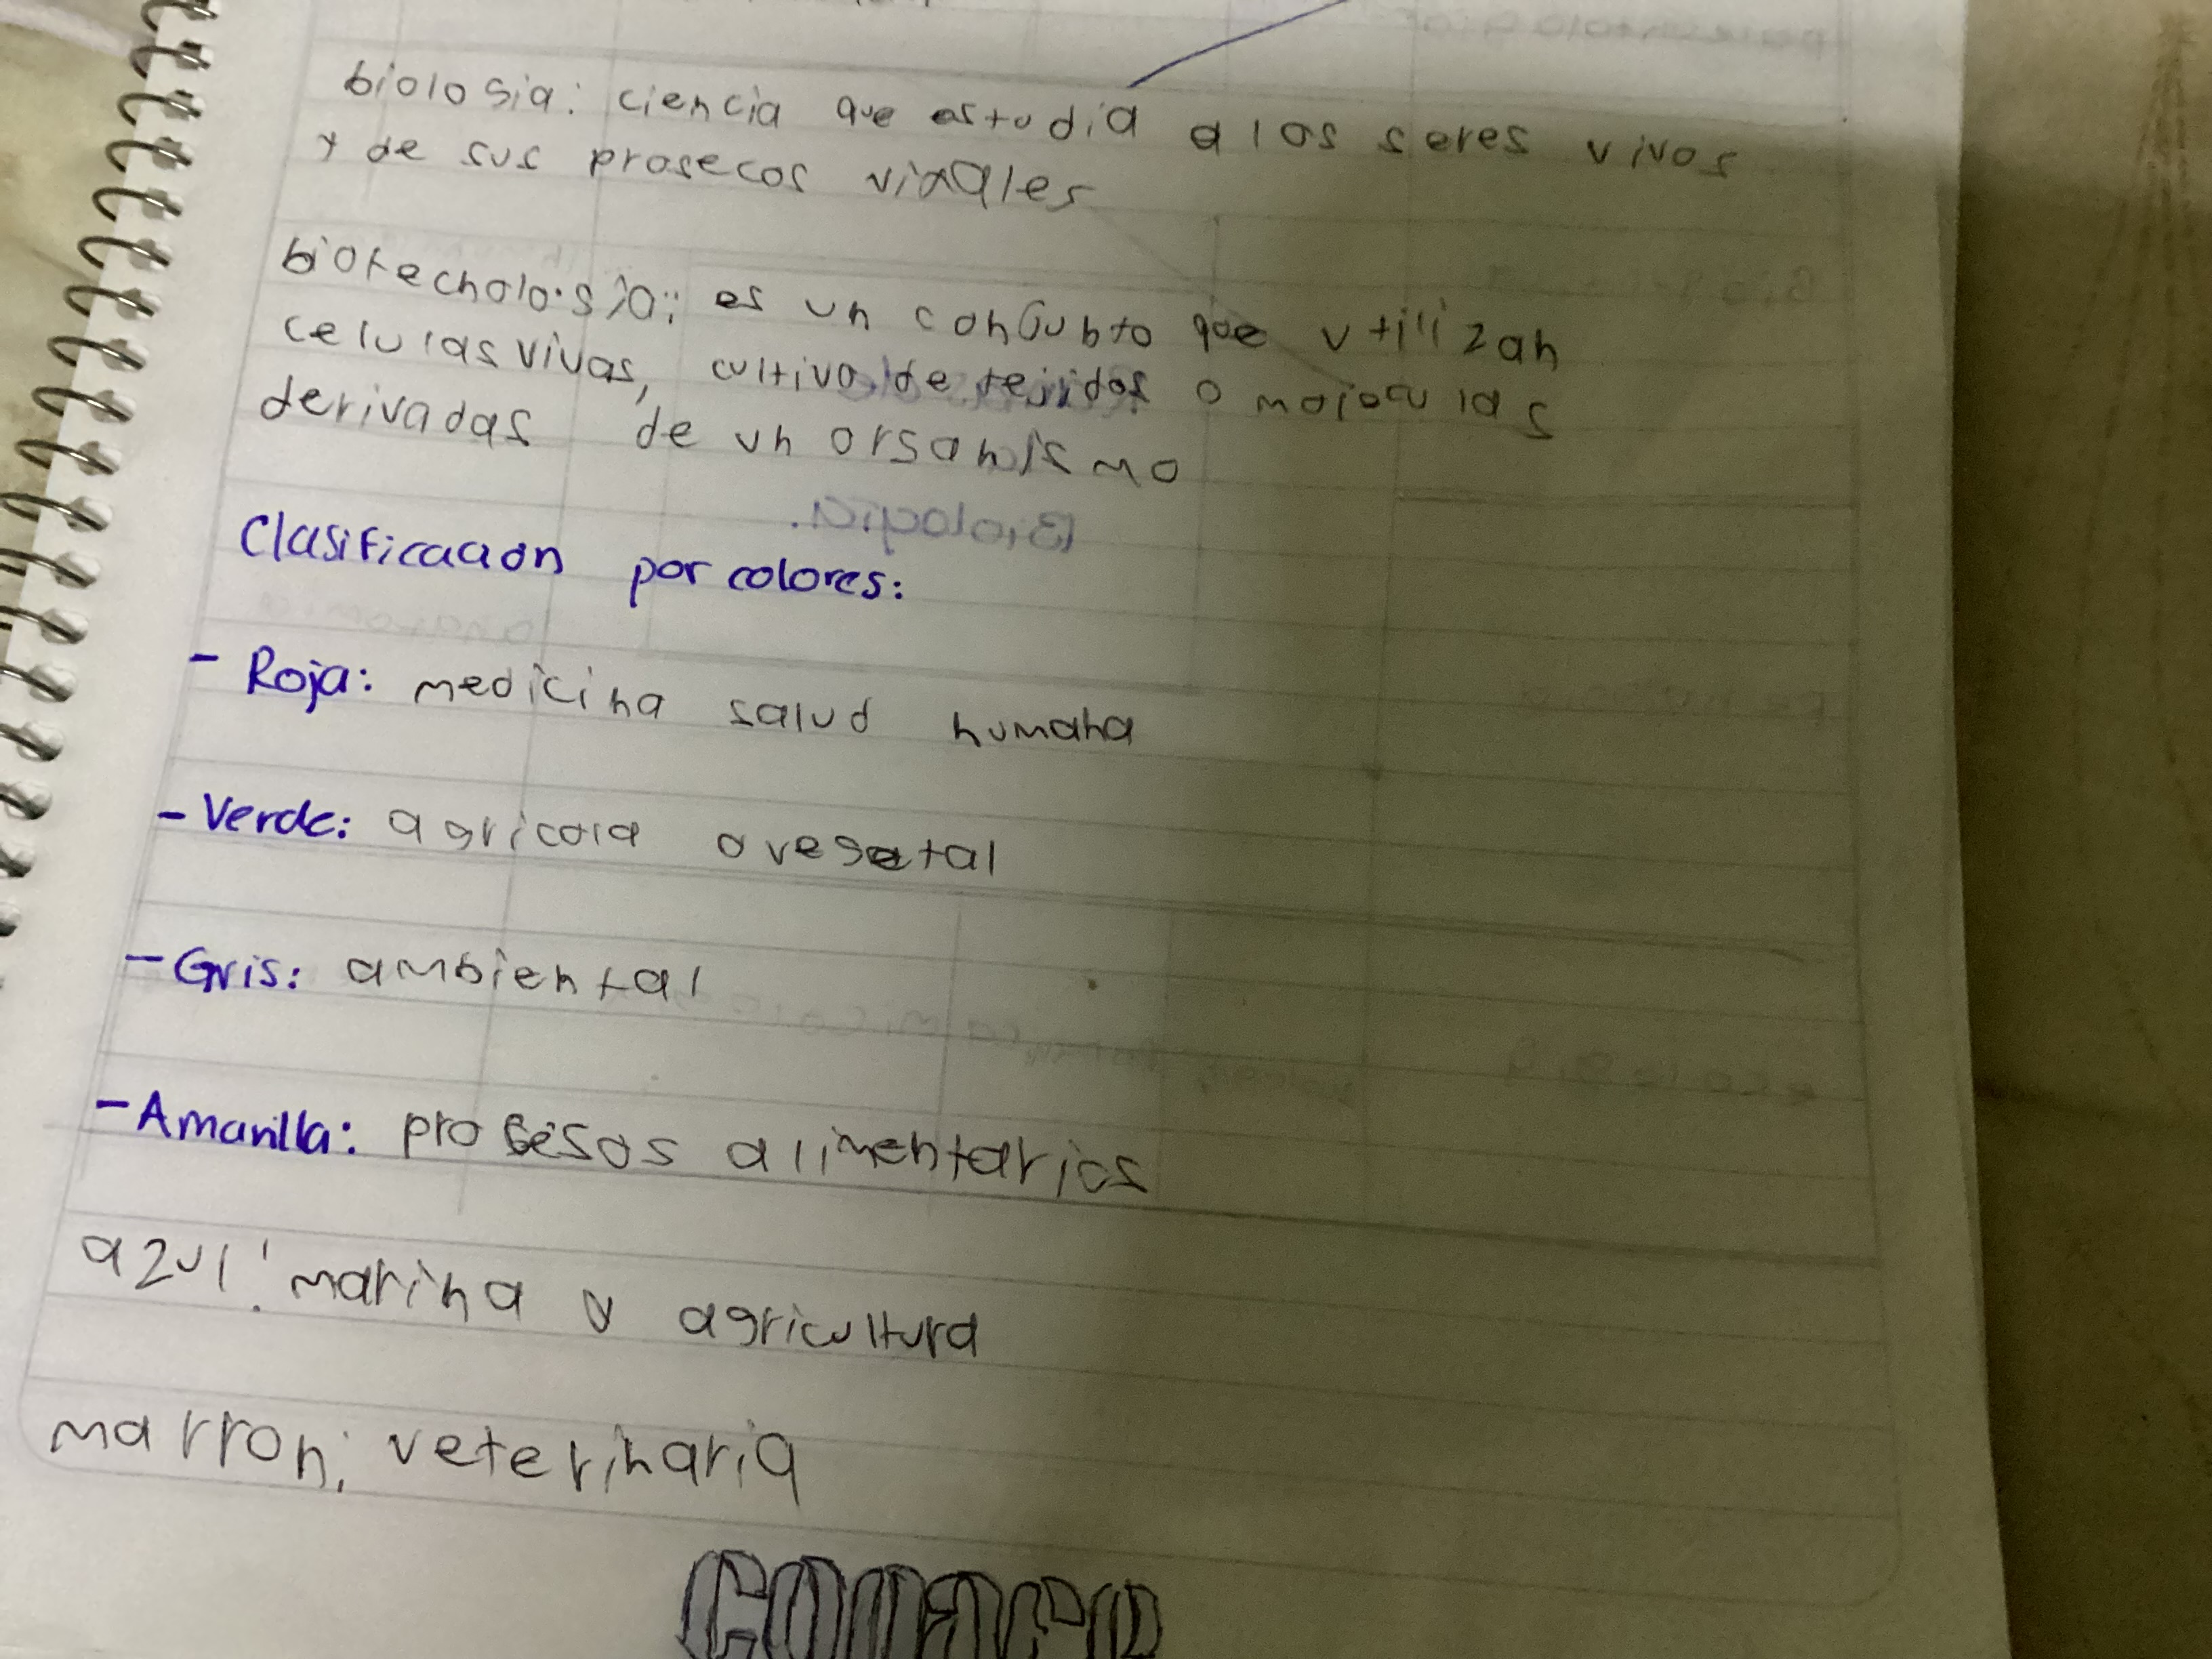 biologia: ciencia que estudia a los seres vivos
y de sus prosecos vitales
biotecnología: es un conjunto que utilizan
celulas vivas, cultivo de tejidos o moleculas
derivadas de un organismo
Clasificacion por colores:
- Roja: medicina salud humana
- Verde: agricola o vegetal
- Gris: ambiental
- Amarilla: procesos alimentarios
azul: marina y agricultura
marron: veterinaria